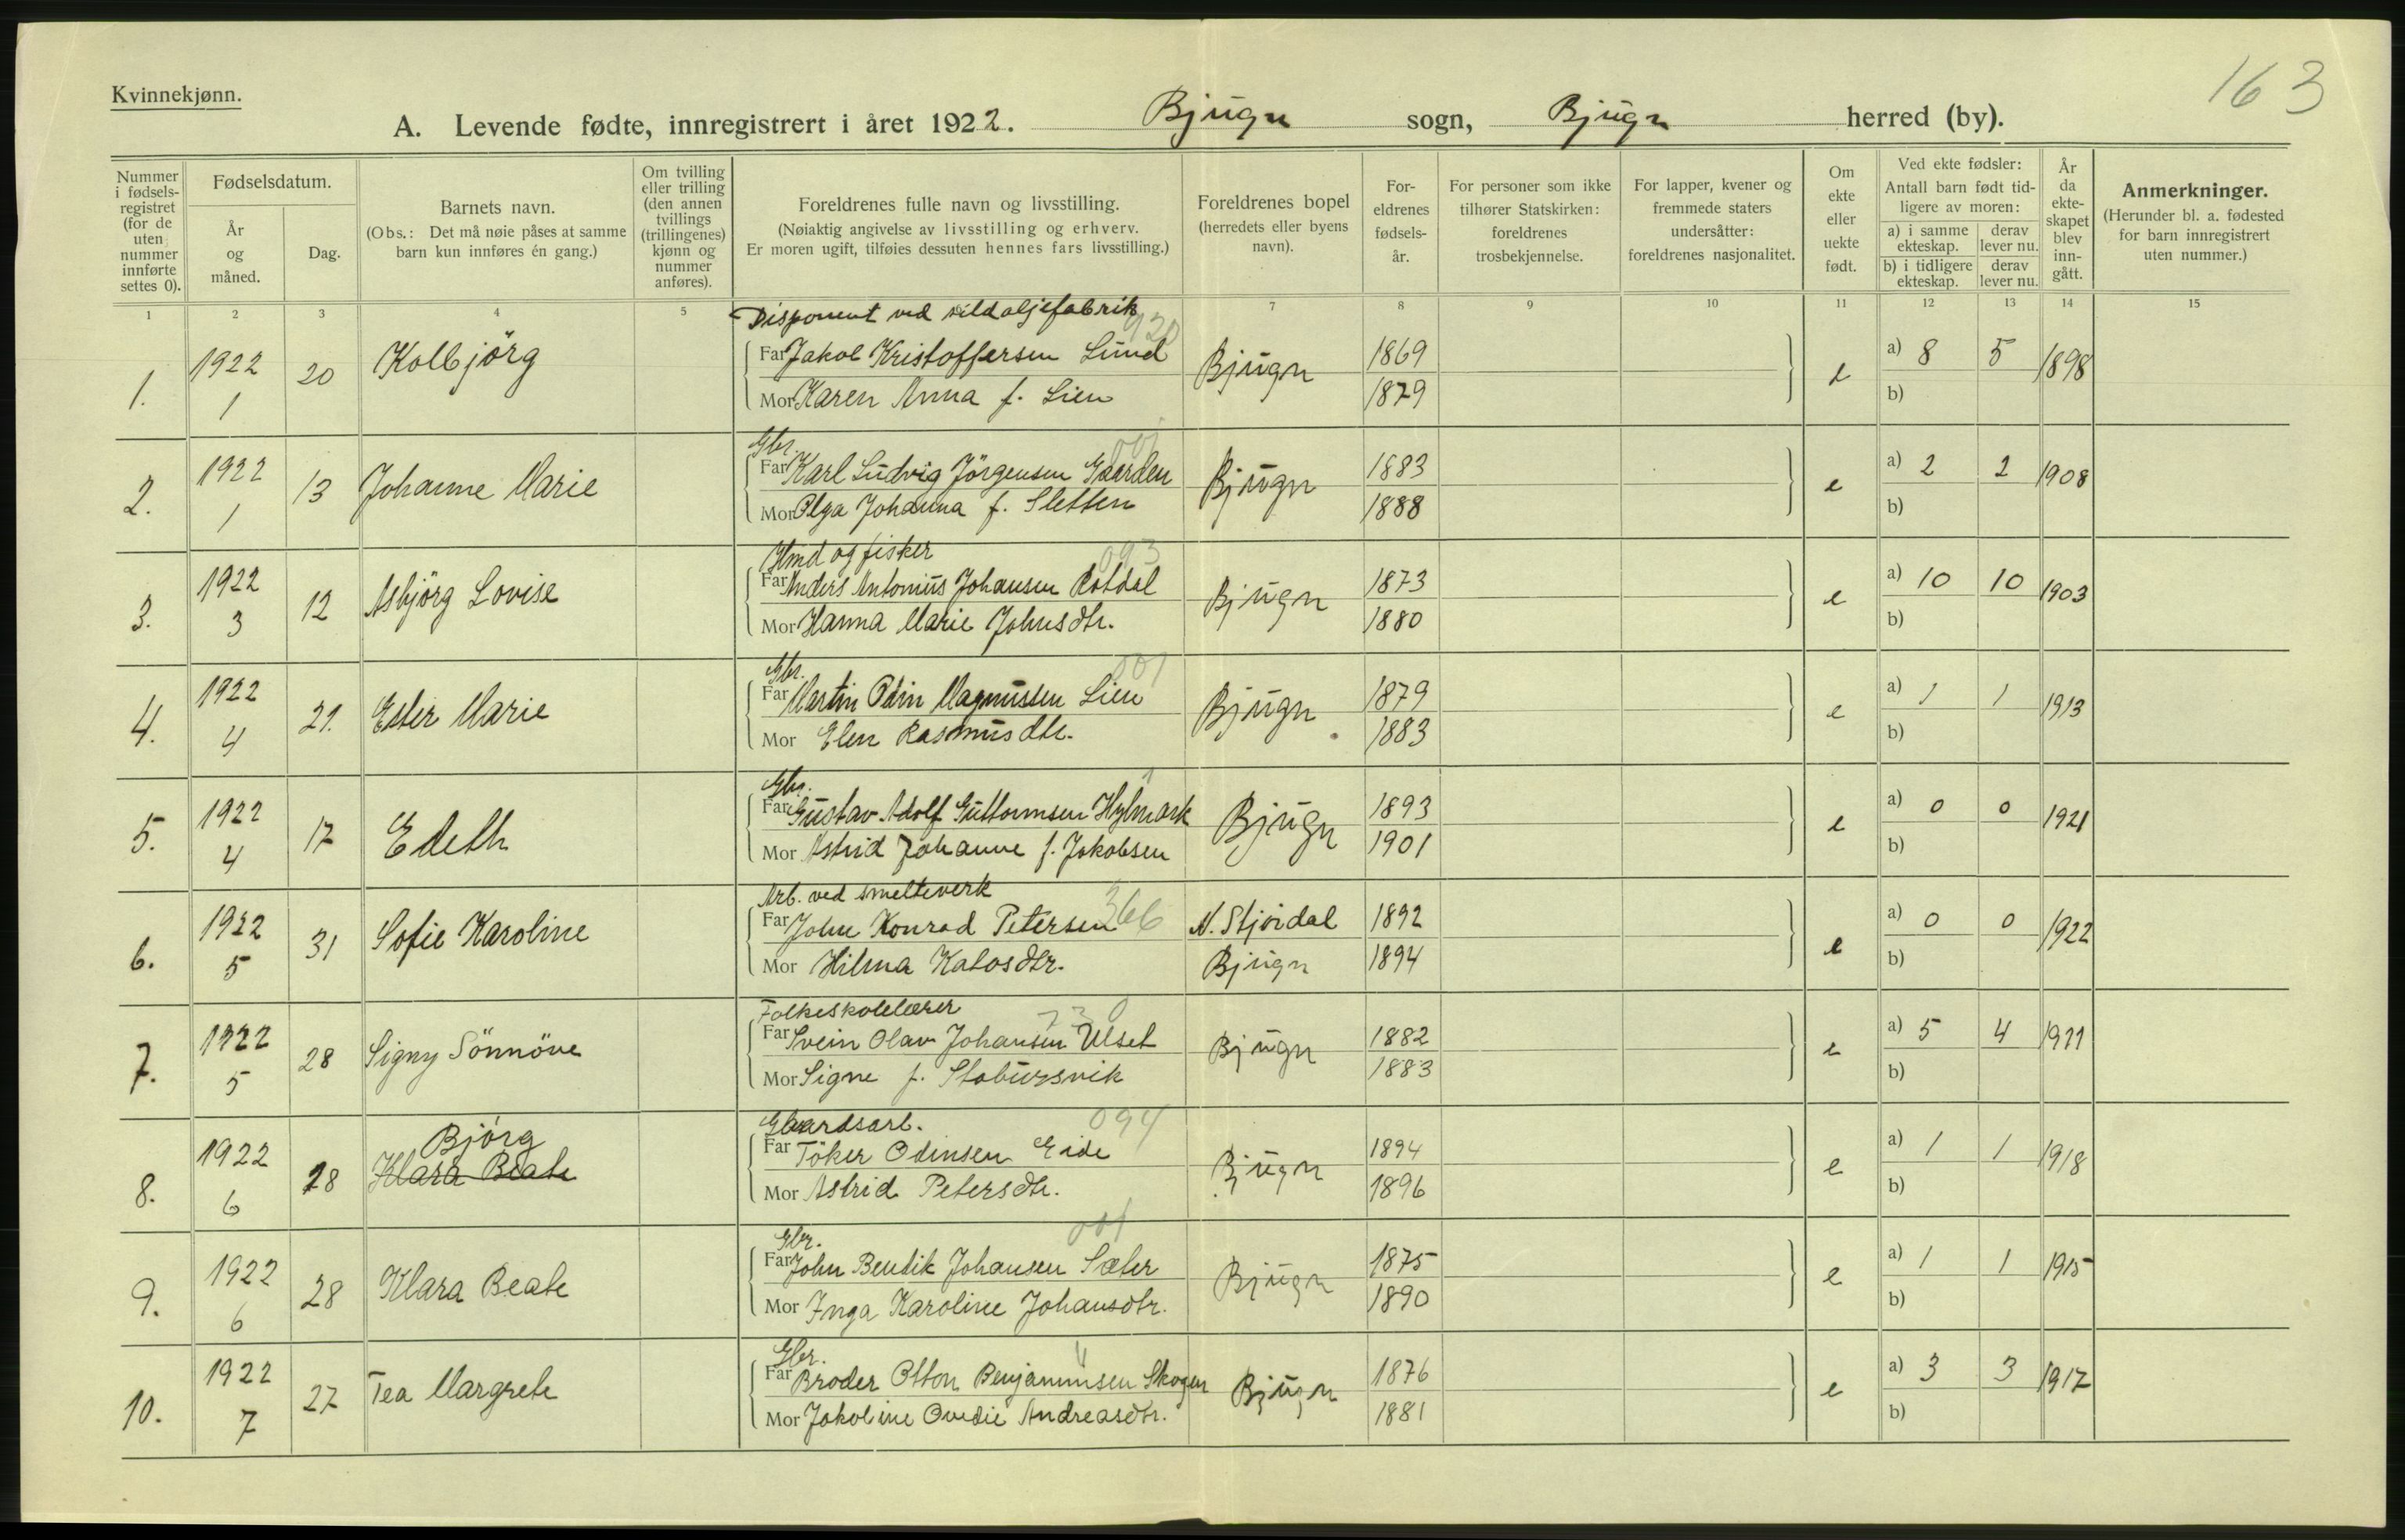 163
Kvinnekjønn.
A. Levende fødte, innregistrert i året 1922. Bjugn sogn, Bjugn herred (by).
Nummer i fødsels- registret (for de uten nummer innførte settes 0).
Fødselsdatum.
År og måned.
Dag.
Barnets navn.
(Obs.: Det må nøie påses at samme barn kun innføres én gang.)
Om tvilling eller trilling (den annen tvillings (trillingenes) kjønn og nummer anføres).
Foreldrenes fulle navn og livsstilling.
(Nøiaktig angivelse av livsstilling og erhverv.
Er moren ugift, tilføies dessuten hennes fars livsstilling.)
Foreldrenes bopel
(herredets eller byens navn).
For- eldrenes fødsels- år.
For personer som ikke tilhører Statskirken: foreldrenes trosbekjennelse.
For lapper, kvener og fremmede staters undersåtter: foreldrenes nasjonalitet.
Om ekte eller uekte født.
Ved ekte fødsler:
Antall barn født tid- ligere av moren:
a) i samme ekteskap. derav lever nu.
b) i tidligere ekteskap. derav lever nu.
År da ekte- skapet blev inn- gått.
Anmerkninger.
(Herunder bl. a. fødested for barn innregistrert uten nummer.)
1 2 3 4 5 7 8 9 10 11 12 13 14 15
Disponent ved sildoljefabrik 920
1. 1922 1 20 Kolbjörg Far Jakob Kristoffersen Lund Bjugn 1869 e a) 8 5 1898
Mor Karen Anna f. Lien 1879 b)
Gbr. 001
2. 1922 1 13 Johanne Marie Far Karl Ludvig Jörgensen Gaarden Bjugn 1883 e a) 2 2 1908
Mor Olga Johanna f. Sletten 1888 b)
Hmd og fisker 093
3. 1922 3 12 Asbjörg Lovise Far Anders Antonius Johansen Bjugn 1873 e a) 10 10 1903
Mor Hanna Marie Johnsdtr. 1880 b)
Gbr. 001
4. 1922 4 21. Ester Marie Far Martin Odin Magnussen Lien Bjugn 1879 e a) 1 1 1913
Mor Elen Rasmusdtr. 1883 b)
Gbr. 1
5. 1922 4 17 Edeth Far Gustav Adolf Guttormsen Hylmark Bjugn 1893 e a) 0 0 1921
Mor Astrid Johanne f. Jakobsen 1901 b)
Arb. ved smelteverk 366
6. 1922 5 31 Sofie Karoline Far John Konrad Petersen N. Stjördal 1892 e a) 0 0 1922
Mor Hilma Katosdtr. Bjugn 1894 b)
Folkeskolelærer 730
7. 1922 5 28 Signy Sönnöve Far Svein Olav Johansen Ulset Bjugn 1882 e a) 5 4 1911
Mor Signe f. Stabursvik 1883 b)
Gaardsarb. 094
8. 1922 6 18 Björg Klara Beate Far Töker Odinsen Eide Bjugn 1894 e a) 1 1 1918
Mor Astrid Petersdtr. 1896 b)
Gbr. 001
9. 1922 6 28 Klara Beate Far John Bendik Johansen Sæter Bjugn 1875 e a) 1 1 1915
Mor Inga Karoline Johansdtr. 1890 b)
Gbr.
10. 1922 7 27 Tea Margrete Far Broder Otton Benjaminsen Skogen Bjugn 1876 e a) 3 3 1917
Mor Jakobine Ovedie Andreasdtr. 1881 b)